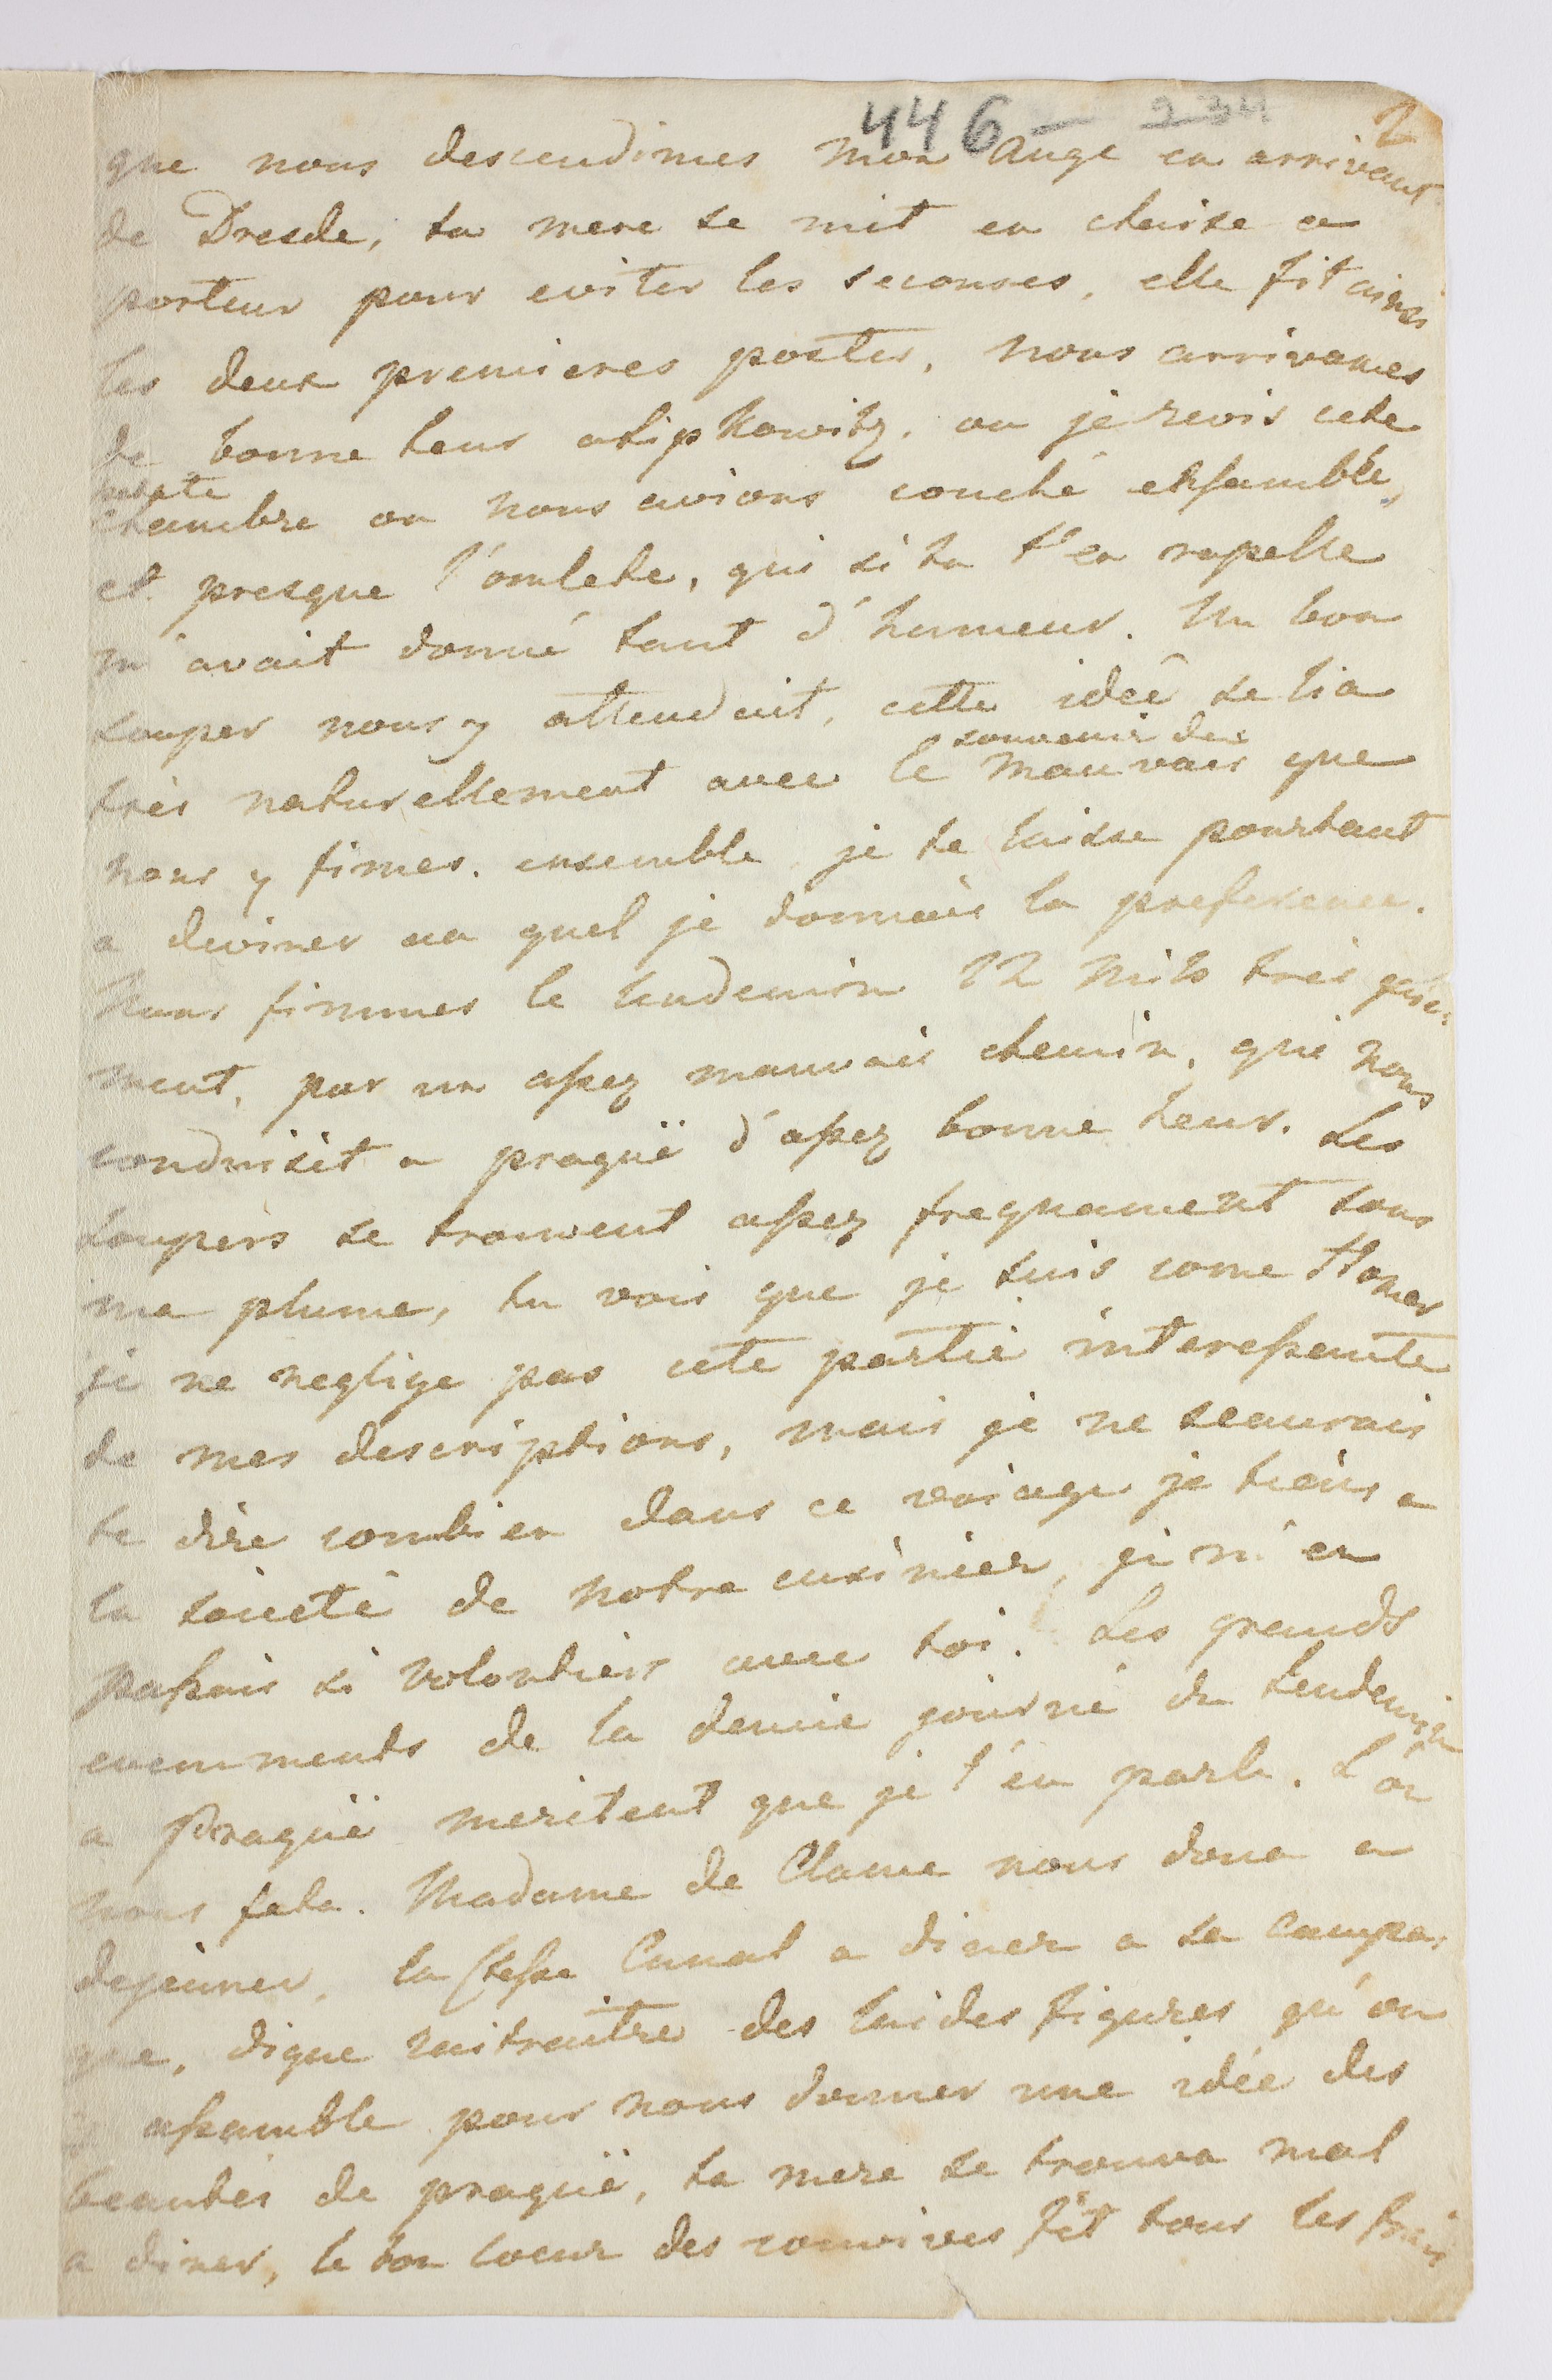 446 — 234 2
que nous descendimes mon ange en arrivant
de Dresde, ta mere se mit en chaise a
porteur pour eviter les secouses, elle fit ainsi
les deux premieres postes, nous arrivames
de bonne heur a lipkowitz, ou je revis cete
petite
chambre ou nous avions couché ensamble,
et presque l'omlete, qui si tu t'en rapelle
m'avait donné tant d'humeur. Un bon
souper nous y attendait, cette idée se lia
souvenir du
très naturellement avec le mauvais que
nous y fimes ensemble je te laisse pourtant
a deviner au quel je donnais la preference.
Nous fimmes le lendemin 12 mils très gaie
ment, par un assez mauvais chemin, qui nous
conduisit a praguë d'assez bonne heur. Les
soupers se trouvent assez frequament sous
ma plume, tu vois que je suis come Homer
je ne neglige pas cete partie interessante
de mes descriptions, mais je ne seaurais
te dire combien dans ce voiage je tiens a
la societé de notre cuisinier, je m'en
passais si volontiers avec toi. Les grands
evenments de la demie journé du lendemin
a Praguë meritent que je t'en parle. L'on
nous feta. Madame de Clame nous dona a
dejeuner, la Ctesse Canal a diner a sa campa,
gne, digne des laides figures qu'on
y assamble pour nous donner une idée des
beautés de praguë, ta mere se trouva mal
a diner, le bon coeur des convives fit tous les frais